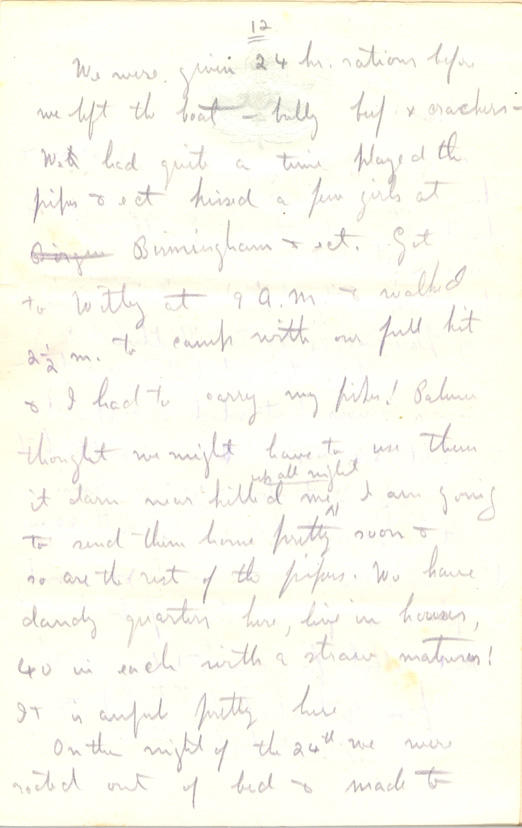 12
We were given 24 hr. rations before
we left the boat - bully beef & crackers -
We had quite a time played the
pipes & ect kissed a few girls at
Birmingham & ect. Got
to Witley at 9 A.M. & walked
2½ m. to camp with our full kit
& I had to carry my pipes! Palmer
thought we might have to use them
up all night
it darn near killed me, I am going
to send them home pretty soon &
so are the rest of the pipers. We have
dandy quarters here, live in houses,
40 in each with a straw matress!
It is awful pretty here
On the night of the 24th we were
routed out of bed & made to